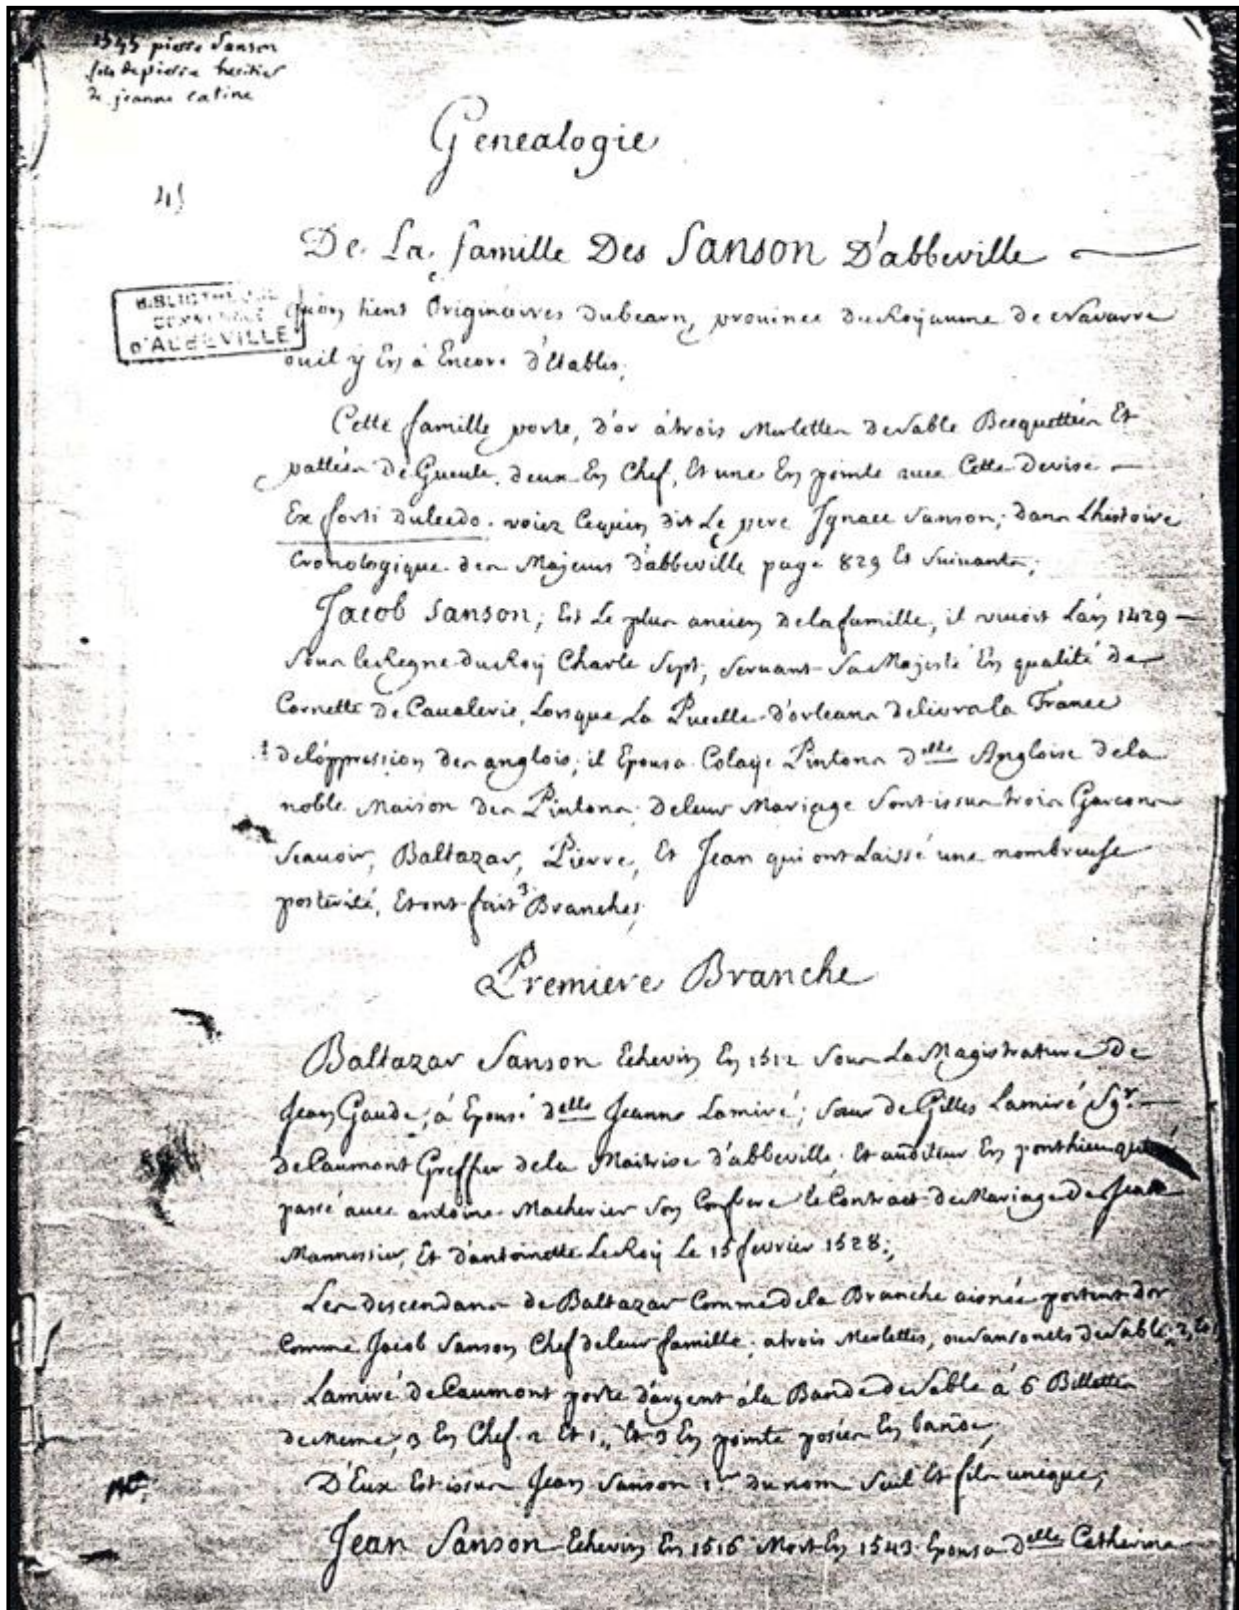 1545 pierre Sanson
fils de pierre heritier
de jeanne catine
Genealogie
45
De La famille Des Sanson D'abbeville
BIBLIOTHEQUE
COMMUNALE
D'ABBEVILLE
quon tient Originaires du bearn, prouince du Royaume de Navarre
ou il y En à Encore d'Etablis,
Cette famille porte, d'or à trois Merlettes de Sable Becquettées Et
pattées de Gueule, deux En Chef, Et une En pointe auec Cette Devise
Ex forti dulcedo. voiez Cequ'en dit Le pere Ignace Sanson, dans Lhistoire
Cronologique des Majeurs d'abbeville page 829 Et Suivantes;
Jacob Sanson, Est Le plus ancien de la famille, il viuoit Lan 1429
Sous le Regne du Roy Charle Sept, Seruant Sa Majesté En qualité de
Cornette de Caualerie, Lorsque La Pucelle d'orleans deliura la France
de lóppression des anglois, il Epousa Colaye Pintons d.elle Angloise de la
noble Maison des Pintons, de leur Mariage Sont issus trois Garcons
Scauoir, Baltazar, Pierre, Et Jean qui ont Laissé une nombreuse
posterité, Et ont fait 3 Branches,
Premiere Branche
Baltazar Sanson Echevin En 1512 Sous La Magistrature De
Jean Gaude, á Epousé d.elle Jeanne Lamiré, Sœur de Gilles Lamiré Sgr.
de Caumont Greffier de la Maitrise d'abbeville Et auditeur En ponthieu qui
passé auec antoine Macherier Son Confrere le Contract de Mariage De Jean
Mannessier, Et d'antoinette Le Roy Le 15 feurier 1528,
Les descendans de Baltazar Comme de la Branche aisnée portent dor
Comme Jacob Sanson Chef de leur famille, a trois Merlettes, ou Sansonets de Sable, 2, Et 1
Lamiré de Caumont porte d'argent à la Bande de Sable à 6 Billettes
de meme, 3 En Chef 2 Et 1,, Et 3 En pointe posées En bande,
D'Eux Est issus Jean Sanson 1.er du nom Seul Et fils unique,
Jean Sanson Echevin En 1516 Mort En 1543 Epousa d.elle Catherine